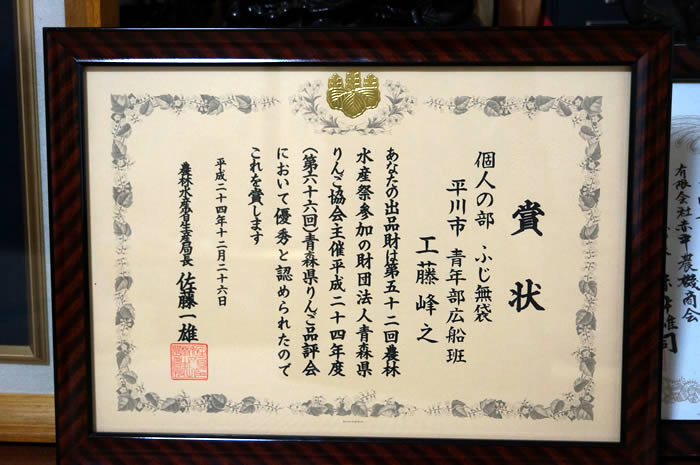 賞状
個人の部 ふじ無袋
平川市 青年部広船班
工藤峰之
あなたの出品財は第五十二回農林
水産祭参加の財団法人青森県
りんご協会主催平成二十四年度
(第六十六回)青森県りんご品評会
において優秀と認められたので
これを賞します
平成二十四年十二月二十六日
農林水産省生産局長 佐藤一雄
有限会社赤平農機商会